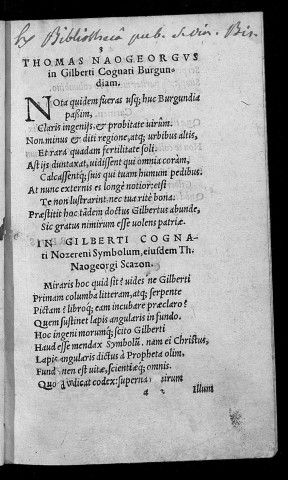 Ex Bibliothecâ pub.
3
THOMAS NAOGEORGVS
in Gilberti Cognati Burgun-
diam.
NOta quidem fueras usq; huc Burgundia
paßim,
Claris ingenijs, et probitate uirûm.
Non minus et diti regione, atq; urbibus altis,
Et rara quadam fertilitate soli.
Ast ijs duntaxat, uidissent qui omnia coràm,
Calcassentq́; suis qui tuam humum pedibus.
At nunc externis es longè notior: etsi
Te non lustrarint, nec tua ritè bona.
Præstitit hoc tãdem doctus Gilbertus abunde,
Sic gratus nimirum esse uolens patriæ.
IN GILBERTI COGNA-
ti Nozereni Symbolum, eiusdem Th.
Naogeorgi Scazon.
Miraris hoc quid sit? uides ne Gilberti
Primam columba litteram, atq; serpente
Pictam? libroq́; eam incubare præclaro?
Quem sustinet lapis angularis in fundo.
Hoc ingeni morumq́; scito Gilberti
Haud esse mendax Symbolũ. nam ei Christus,
Lapis angularis dictus à Propheta olim,
Fundamen est uitæ, scientiæq́; omnis.
Quo iudicat codex: supernâ uirum
a 2 Illunt